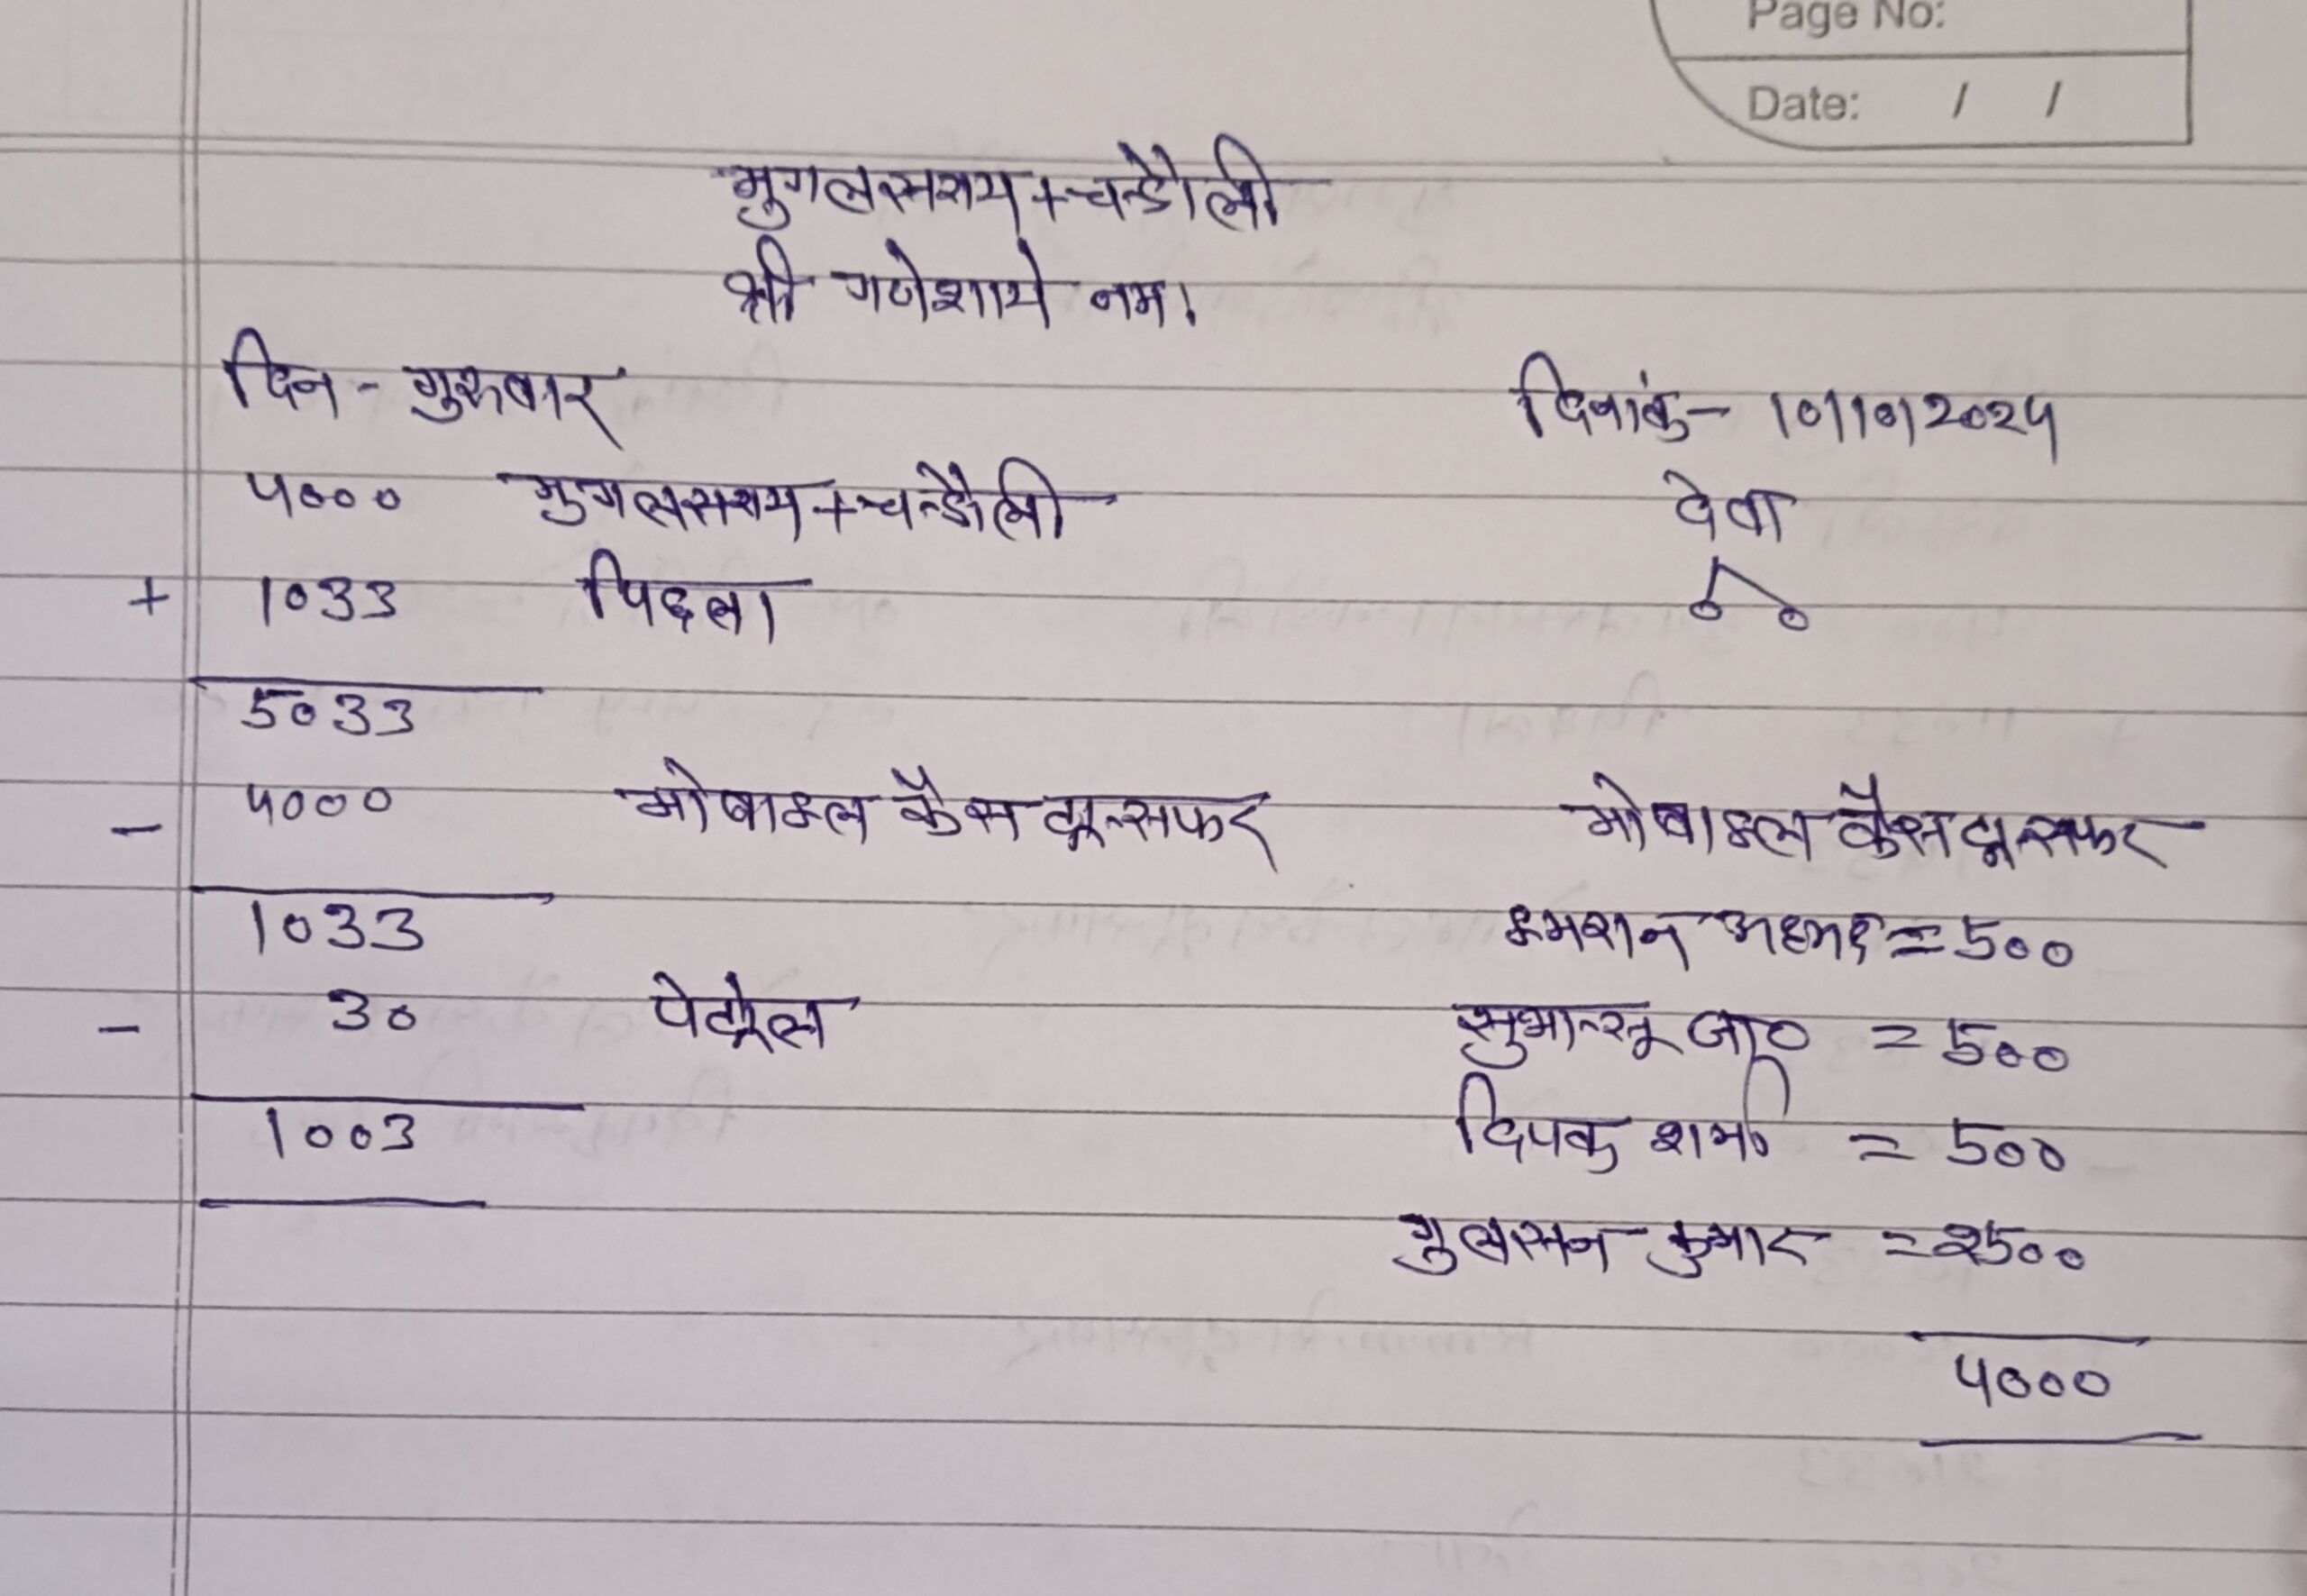 Page No:
Date: / /
मुगलसराय + चन्डौली
श्री गणेशाये नम।
दिन - गुरुवार दिनांक - 10/10/2024
4000 मुगलसराय + चन्डौली देवा
+ 1033 पिछला
5033
- 4000 मोबाइल कैस ट्रान्सफर मोबाइल कैस ट्रान्सफर
1033 इमरान अहमद = 500
- 30 पेट्रोल सुभान्सू जा० = 500
1003 दिपक शर्मा = 500
गुलसन कुमार = 2500
4000